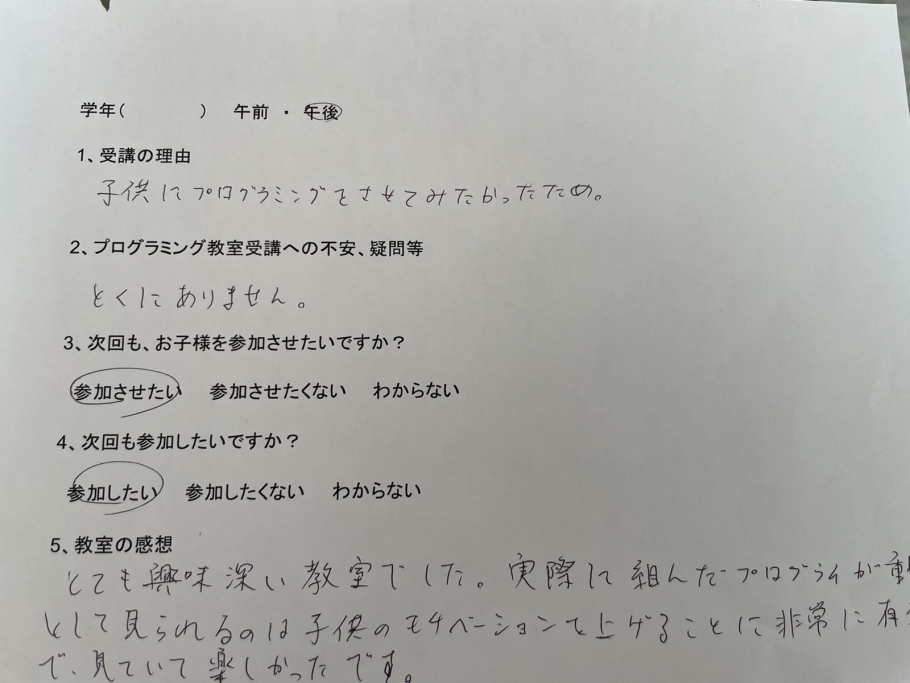 学年(　　　　)　午前 ・ 午後
1、受講の理由
子供にプログラミングをさせてみたかったため。
2、プログラミング教室受講への不安、疑問等
とくにありません。
3、次回も、お子様を参加させたいですか?
参加させたい　参加させたくない　わからない
4、次回も参加したいですか?
参加したい　参加したくない　わからない
5、教室の感想
とても興味深い教室でした。実際に組んだプログライが
として見られるのは子供のモチベーションを上げることに非常に有
で、見ていて楽しかったです。